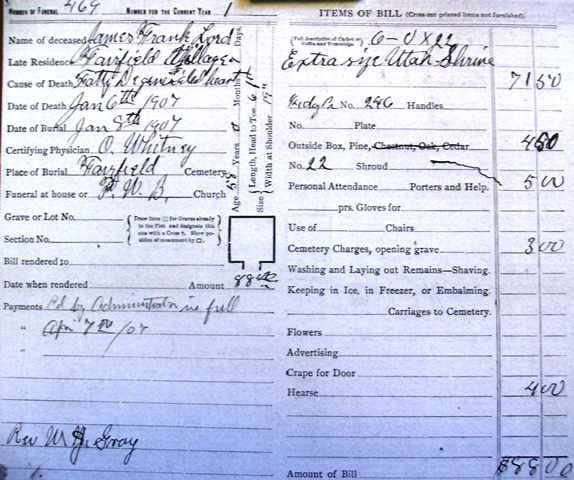 NUMBER OF FUNERAL 469 NUMBER FOR THE CURRENT YEAR 1
Name of deceased James Frank Lord
Late Residence Fairfield Village
Cause of Death Fatty Degenerated heart
Date of Death Jan 6th 1907
Date of Burial Jan 8th 1907
Certifying Physician O. Whitney
Place of Burial Fairfield Cemetery
Funeral at house or F. W. B. Church
Age 58 Years 0 Months Days
Size { Length, Head to Toe 6 Width at Shoulder 19"
Grave or Lot No.
Section No.
{ Draw lines for Graves already in the Plot and designate this one with a Cross †. Show position of monument by □. }
Bill rendered to
Date when rendered Amount 88.00
Payments Pd by Administrator in full
" Apr 7th /07
"
Rev W H Gray
ITEMS OF BILL (Cross out printed items not furnished).
{ Full description of Casket or Coffin and Trimmings. } 6-0 X 22
Extra size Utah Shrine 71 50
No. 246 Handles
No. Plate
Outside Box, Pine, Chestnut, Oak, Cedar 4 50
No. 22 Shroud
Personal Attendance Porters and Help. 5 00
prs. Gloves for
Use of Chairs
Cemetery Charges, opening grave 3 00
Washing and Laying out Remains—Shaving.
Keeping in Ice, in Freezer, or Embalming.
Carriages to Cemetery.
Flowers
Advertising
Crape for Door
Hearse 4 00
Amount of Bill $88 00